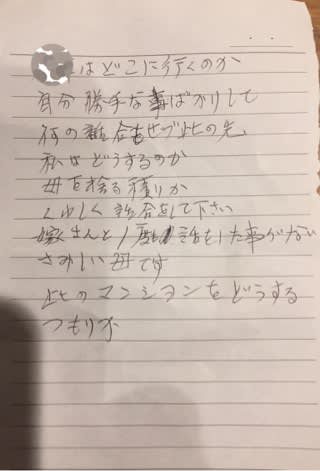 はどこに行くのか
自分勝手な事ばかりして
何の話合もせづ此の先、
私はどうするのか
母を捨る積りか
くわしく話合をして下さい
嫁さんと1度も話をした事がない
さみしい母です
此のマンションをどうする
つもりか